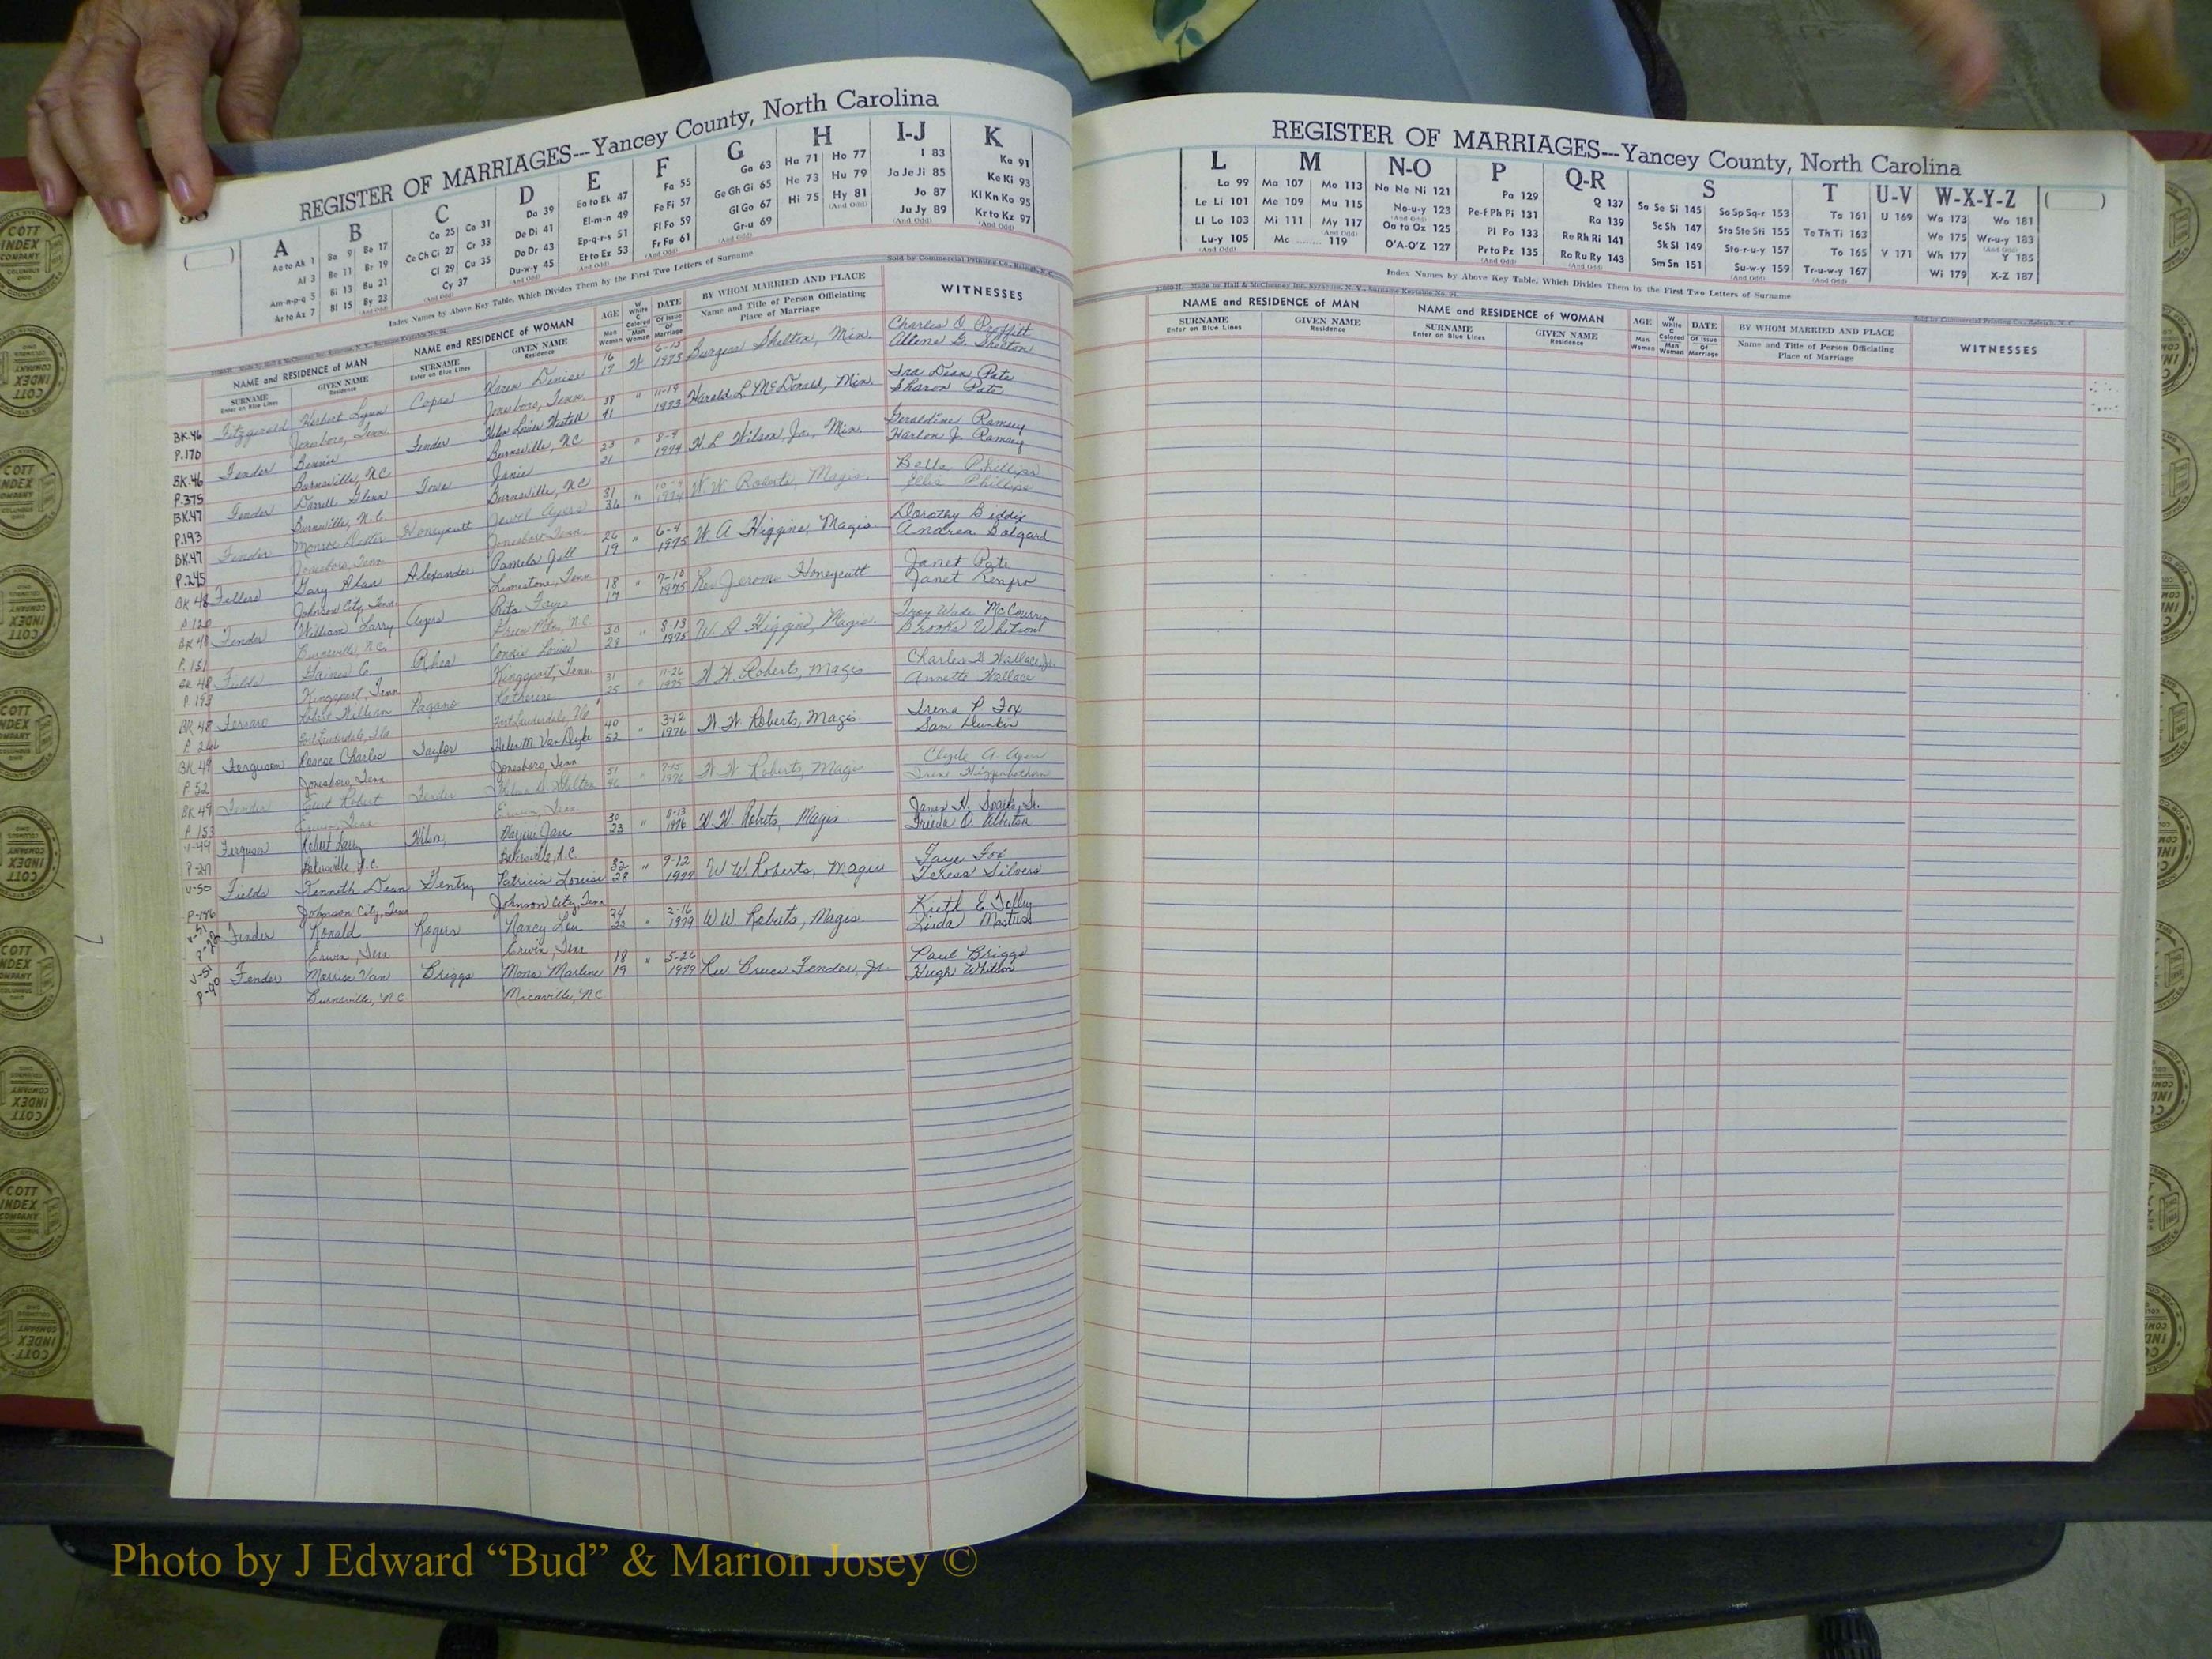 REGISTER OF MARRIAGES---Yancey County, North Carolina
A B C D E F G H I-J K
Aa to Ak 1
Al 3
Am-n-p-q 5
Ar to Az 7
Ba 9 Bo 17
Be 11 Br 19
Bi 13 Bu 21
Bl 15 By 23
(And Odd)
Ca 25 Co 31
Ce Ch Ci 27 Cr 33
Cl 29 Cu 35
Cy 37
(And Odd)
Da 39
De Di 41
Do Dr 43
Du-w-y 45
(And Odd)
Ea to Ek 47
El-m-n 49
Ep-q-r-s 51
Et to Ez 53
(And Odd)
Fa 55
Fe Fi 57
Fl Fo 59
Fr Fu 61
(And Odd)
Ga 63
Ge Gh Gi 65
Gl Go 67
Gr-u 69
(And Odd)
Ha 71 Ho 77
He 73 Hu 79
Hi 75 Hy 81
(And Odd)
I 83
Ja Je Ji 85
Jo 87
Ju Jy 89
(And Odd)
Ka 91
Ke Ki 93
Kl Kn Ko 95
Kr to Kz 97
(And Odd)
Index Names by Above Key Table, Which Divides Them by the First Two Letters of Surname
Sold by Commercial Printing Co., Raleigh, N. C.
NAME and RESIDENCE of MAN
SURNAME Enter on Blue Lines
GIVEN NAME Residence
NAME and RESIDENCE of WOMAN
SURNAME Enter on Blue Lines
GIVEN NAME Residence
AGE Man Woman
W White C Colored Man Woman
DATE Of Issue Of Marriage
BY WHOM MARRIED AND PLACE
Name and Title of Person Officiating
Place of Marriage
WITNESSES
BK.46 Fitzgerald Herbert Lynn Copas Karen Denise 16 W 6-15 Burgess Shelton, Min. Charles O. Proffitt
P.170 Jonesboro, Tenn. Jonesboro, Tenn. 17 1973 Allene G. Shelton
BK.46 Fender Bennie Fender Helen Louise 38 " 11-19 Harold L. McDonald, Min. Ira Dean Pate
P.375 Burnsville, NC Burnsville, NC 41 1983 Sharon Pate
BK47 Fender Darrell Glenn Towe Janie 23 " 8-9 H L Wilson, Jr., Min. Geraldine Ramsey
P.193 Burnsville, N.C. Burnsville, NC 21 1974 Harlon J. Ramsey
BK47 Fender Monroe Honeycutt Jewel Ayers 31 " W W Roberts, Magis. Belle Phillips
P.245 Jonesboro, Tenn Jonesboro Tenn. 36 1974 Ellis Phillips
BK 48 Fellers Gary Alan Alexander Pamela Jill 26 " 6-4 W. A. Higgins, Magis. Dorothy Biddix
P 120 Johnson City, Tenn. Limestone, Tenn 19 1975 Andrea
BK 48 Fender William Larry Ayers Rita Faye 18 " 7-10 Rev Jerome Honeycutt Janet Pate
P. 151 Burnsville, N.C. Green Mtn, N.C. 17 1975 Janet Renfro
BK 48 Fields Gaines C. Rhea Connie Louise 30 " 8-13 W. A. Higgins, Magis. Troy Wade McCourry
P. 193 Kingsport, Tenn Kingsport, Tenn. 28 1975 Brooks Whitson
BK 48 Ferraro Robert William Pagano Katherine 31 " 11-26 W. W. Roberts, Magis Charles Wallace
31 25 1975 Annette Wallace
BK 49 Ferguson Roscoe Charles Taylor Helen M. Van Dyke 40 " 3-12 W. W. Roberts, Magis Irena P. Fox
P 52 Jonesboro, Tenn Jonesboro, Tenn 52 1976 Sam
BK 49 Fender Robert Fender 51 " 7-15 W. W. Roberts, Magis Clyde A. Ayers
P 153 Erwin, Tenn Erwin, Tenn 46 1976 Irene Higginbotham
V-49 Ferguson Robert Larry Wilson Jane 30 " 8-13 W. W. Roberts, Magis.
Bakersville N.C. Bakersville, N.C. 23 1976
V-50 Fields Kenneth Dean Gentry Patricia Louise 32 " 9-12 W W Roberts, Magis Faye Fox
P-186 Johnson City, Tenn Johnson City, Tenn 28 1977 Teresa Silvers
V-51 Fender Ronald Rogers Nancy Lou 24 " 2-16 W W. Roberts, Magis. Kieth E. Tolley
Erwin, Tenn Erwin, Tenn 22 1979 Linda Masters
V-51 Fender Morris Van Briggs Mona Marlene 18 " 5-26 Rev Bruce Fender, Jr. Paul Briggs
P-90 Burnsville, N.C. Micaville, NC 19 1979 Hugh Whitson
REGISTER OF MARRIAGES---Yancey County, North Carolina
L M N-O P Q-R S T U-V W-X-Y-Z
La 99
Le Li 101
Ll Lo 103
Lu-y 105
(And Odd)
Ma 107 Mo 113
Me 109 Mu 115
Mi 111 My 117
(And Odd)
Mc ........ 119
Na Ne Ni 121
No-u-y 123
(And Odd)
Oa to Oz 125
O'A-O'Z 127
Pa 129
Pe-f Ph Pi 131
Pl Po 133
Pr to Pz 135
(And Odd)
Q 137
Ra 139
Re Rh Ri 141
Ro Ru Ry 143
(And Odd)
Sa Se Si 145 So Sp Sq-r 153
Sc Sh 147 Sta Ste Sti 155
Sk Sl 149 Sto-r-u-y 157
Sm Sn 151 Su-w-y 159
(And Odd)
Ta 161
Te Th Ti 163
To 165
Tr-u-w-y 167
(And Odd)
U 169
V 171
Wa 173 Wo 181
We 175 Wr-u-y 183
(And Odd)
Wh 177 Y 185
Wi 179 X-Z 187
Index Names by Above Key Table, Which Divides Them by the First Two Letters of Surname
Made by Hall & McChesney Inc. Syracuse, N. Y., Surname Keytable No. 94
Sold by Commercial Printing Co., Raleigh, N. C.
NAME and RESIDENCE of MAN
SURNAME Enter on Blue Lines
GIVEN NAME Residence
NAME and RESIDENCE of WOMAN
SURNAME Enter on Blue Lines
GIVEN NAME Residence
AGE Man Woman
W White C Colored Man Woman
DATE Of Issue Of Marriage
BY WHOM MARRIED AND PLACE
Name and Title of Person Officiating
Place of Marriage
WITNESSES
COTT INDEX COMPANY COLUMBUS OHIO
Photo by J Edward “Bud” & Marion Josey ©